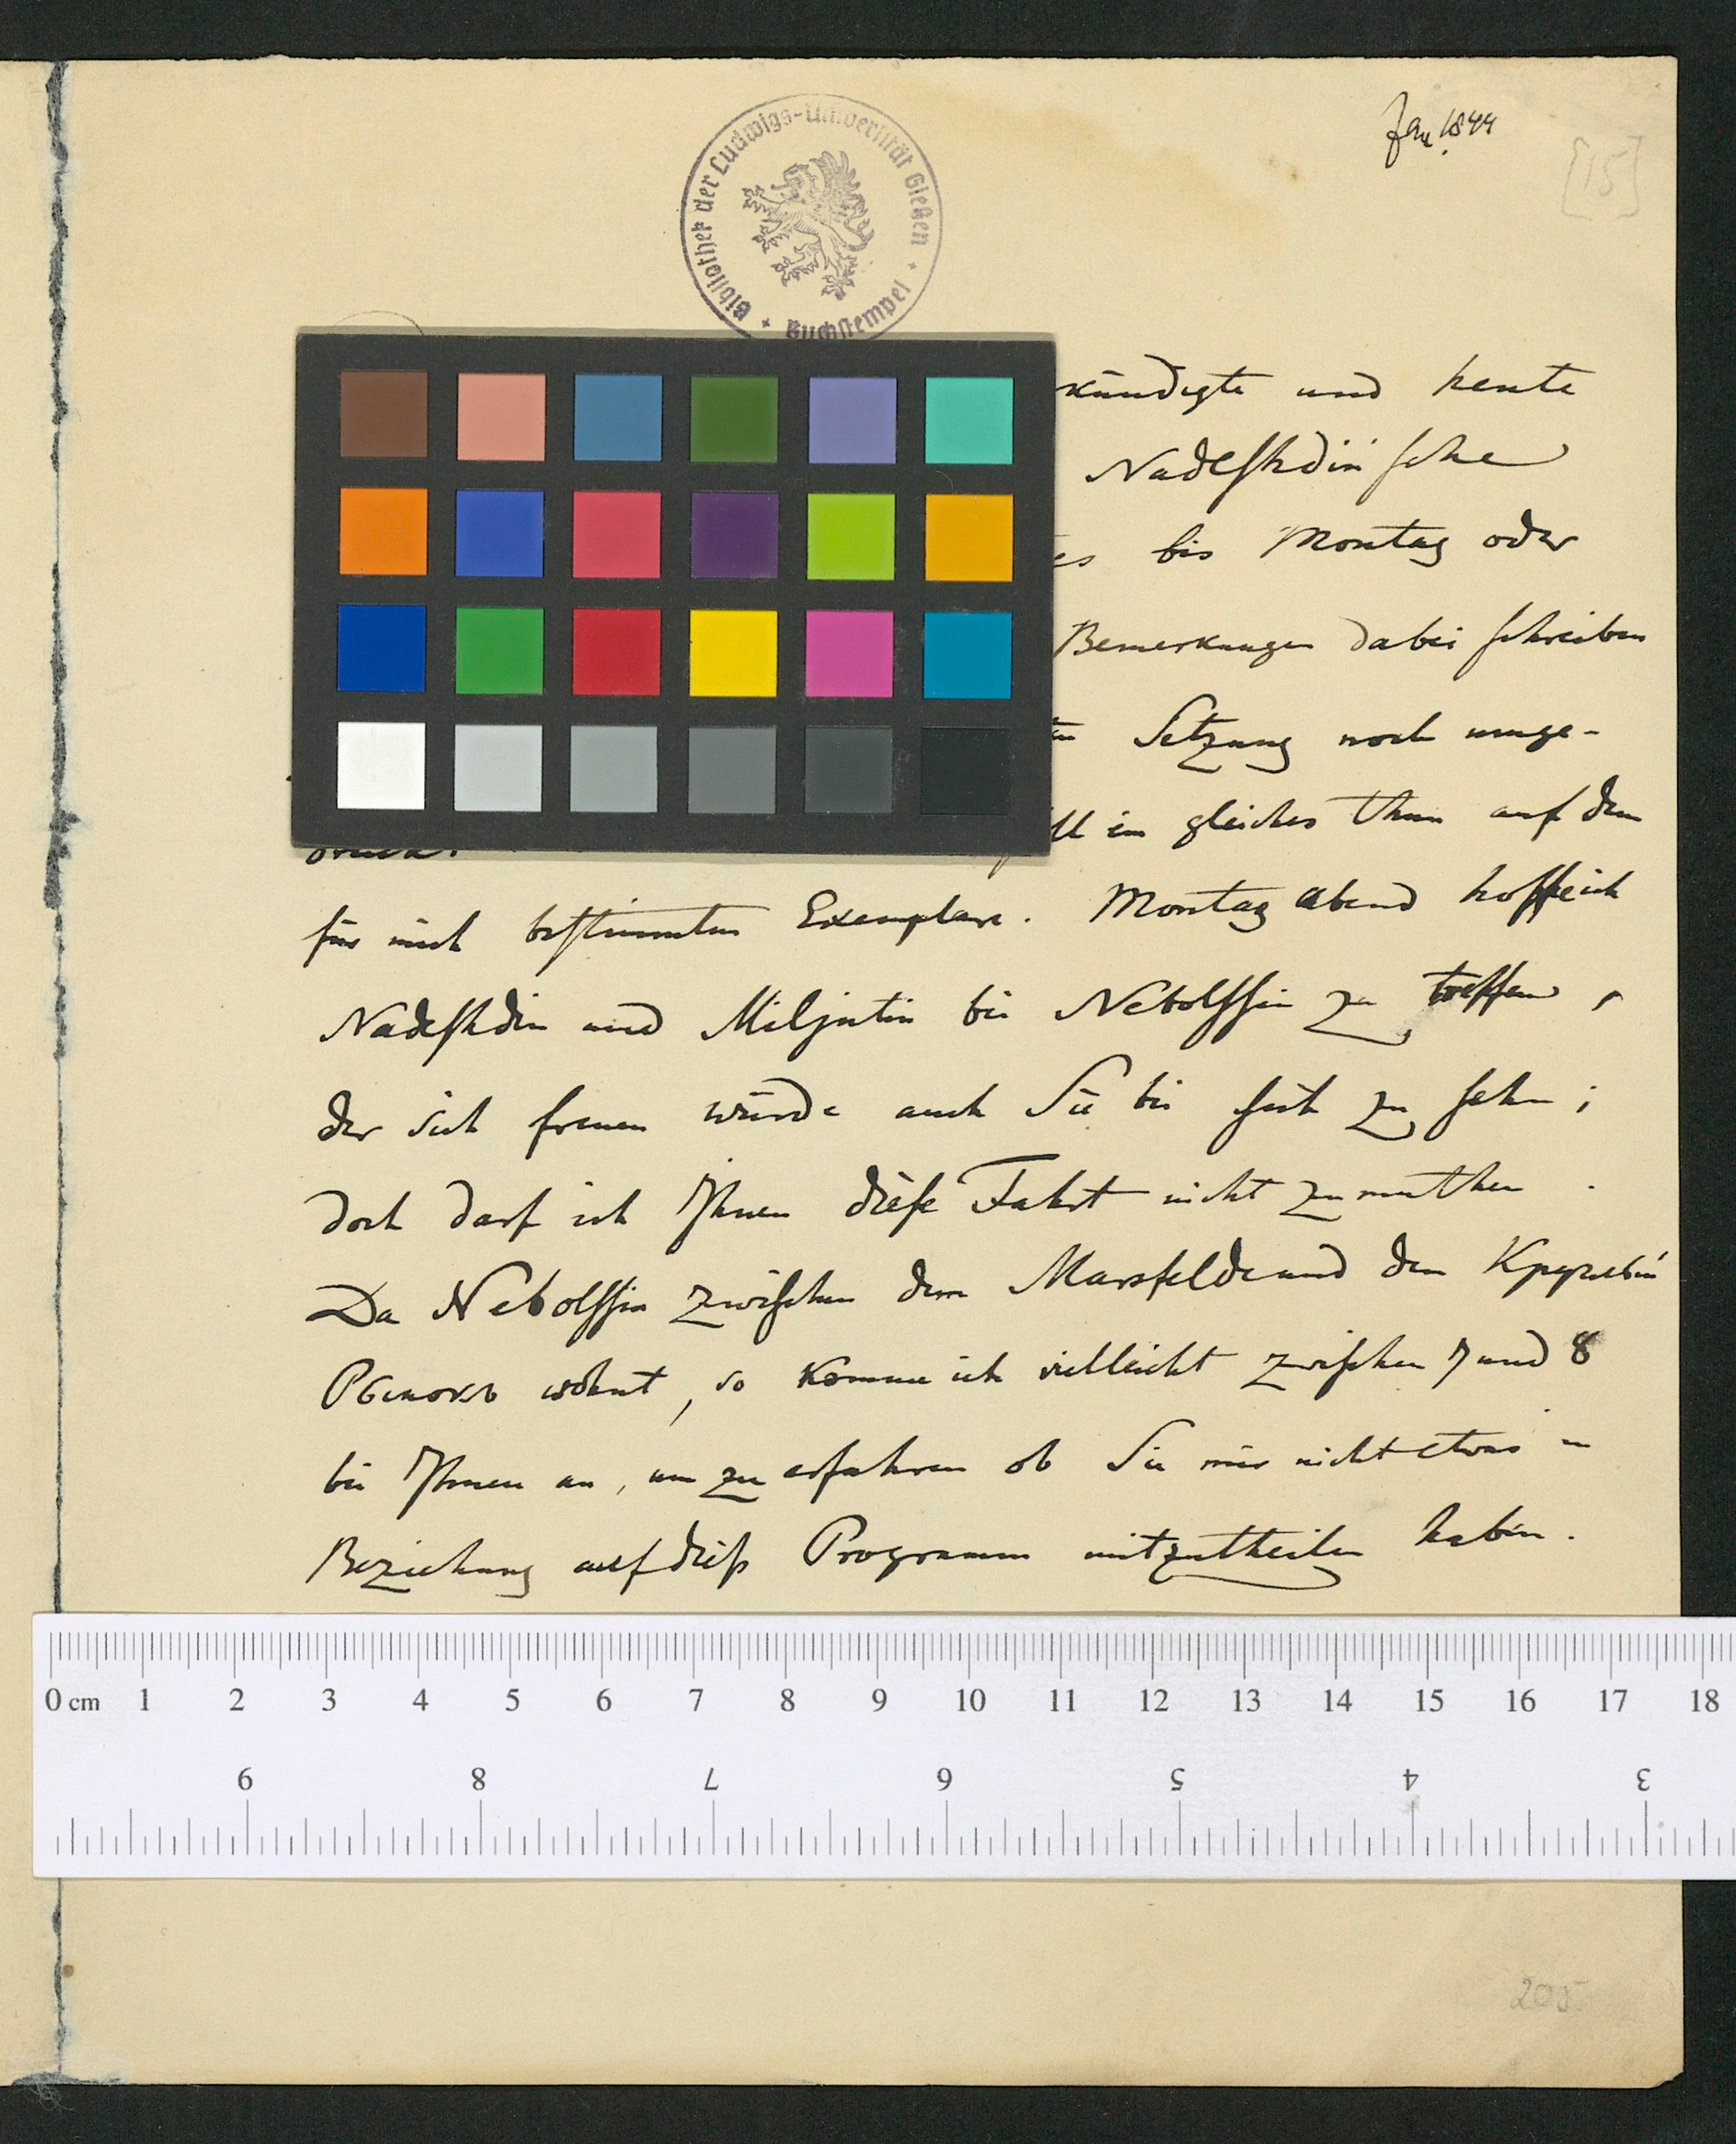 Jan. 1844
[15]
Bibliothek der Ludwigs-Universität Gießen + Buchstempel +
kündigte und heute
Nadeshdinsche
es bis Montag oder
Bemerkungen dabei schreiben
Setzung noch umge-
ll ein gleiches thun auf dem
druckt.
für mich bestimmten Exemplare. Montag abend hoffe ich
Nadeshdin und Miljutin bei Nebolssin zu treffen,
der sich freuen würde auch Sie bei sich zu sehn;
doch darf ich Ihnen diese Fahrt nicht zumuthen.
Da Nebolssin zwischen dem Marsfelde und dem
wohnt, so komme ich vielleicht zwischen 7 und 8
bei Ihnen an, um zu erfahren ob Sie mir nicht etwas in
Beziehung auf dieß Programm mitzutheilen haben.
0 cm 1 2 3 4 5 6 7 8 9 10 11 12 13 14 15 16 17 18
9 8 7 6 5 4 3
205